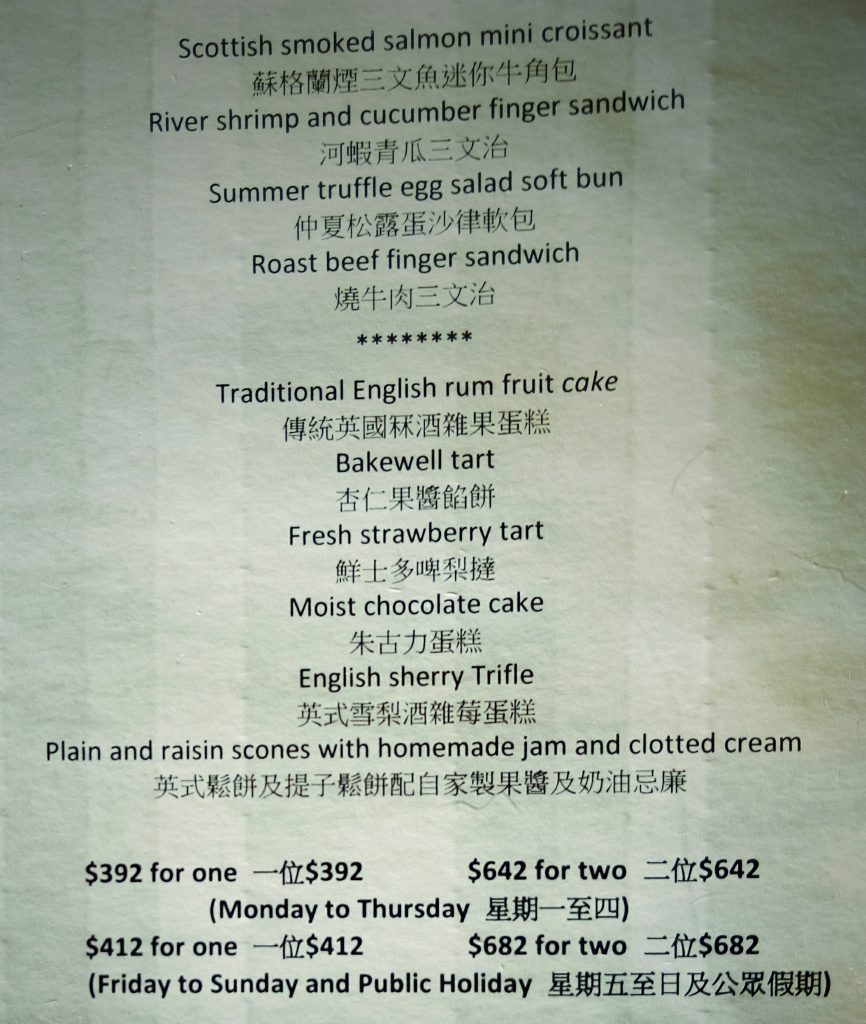 Scottish smoked salmon mini croissant
蘇格蘭煙三文魚迷你牛角包
River shrimp and cucumber finger sandwich
河蝦青瓜三文治
Summer truffle egg salad soft bun
仲夏松露蛋沙律軟包
Roast beef finger sandwich
燒牛肉三文治
********
Traditional English rum fruit cake
傳統英國冧酒雜果蛋糕
Bakewell tart
杏仁果醬餡餅
Fresh strawberry tart
鮮士多啤梨撻
Moist chocolate cake
朱古力蛋糕
English sherry Trifle
英式雪梨酒雜莓蛋糕
Plain and raisin scones with homemade jam and clotted cream
英式鬆餅及提子鬆餅配自家製果醬及奶油忌廉
$392 for one 一位$392 $642 for two 二位$642
(Monday to Thursday 星期一至四)
$412 for one 一位$412 $682 for two 二位$682
(Friday to Sunday and Public Holiday 星期五至日及公眾假期)